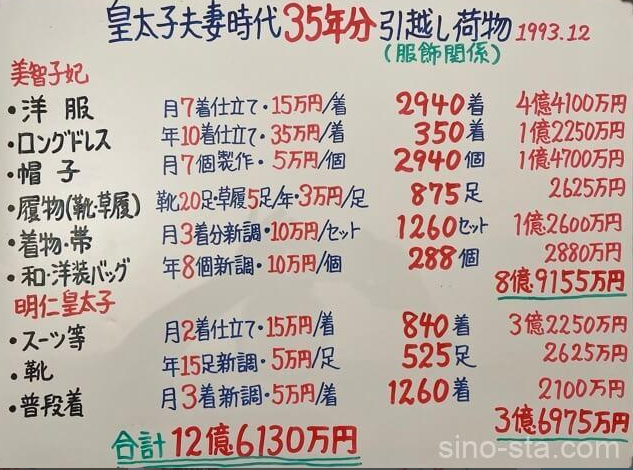 皇太子夫妻時代35年分引越し荷物 1993.12
(服飾関係)
美智子妃
•洋服 月7着仕立て・15万円/着 2940着 4億4100万円
•ロングドレス 年10着仕立て・35万円/着 350着 1億2250万円
•帽子 月7個製作・5万円/個 2940個 1億4700万円
•履物(靴・草履) 靴20足・草履5足/年・3万円/足 875足 2625万円
•着物・帯 月3着分新調・10万円/セット 1260セット 1億2600万円
•和・洋装バッグ 年8個新調・10万円/個 288個 2880万円
8億9155万円
明仁皇太子
•スーツ等 月2着仕立て・15万円/着 840着 3億2250万円
•靴 年15足新調・5万円/足 525足 2625万円
•普段着 月3着新調・5万円/着 1260着 2100万円
3億6975万円
合計12億6130万円
sino-sta.com